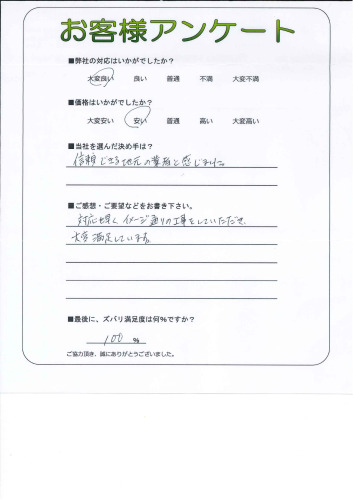 お客様アンケート
■弊社の対応はいかがでしたか？
大変良い 良い 普通 不満 大変不満
■価格はいかがでしたか？
大変安い 安い 普通 高い 大変高い
■当社を選んだ決め手は？
信頼できる地元の業者と感じました。
■ご感想・ご要望などをお書き下さい。
対応も早く、イメージ通りの工事をしていただき、
大変満足しています。
■最後に、ズバリ満足度は何％ですか？
100 %
ご協力頂き、誠にありがとうございました。